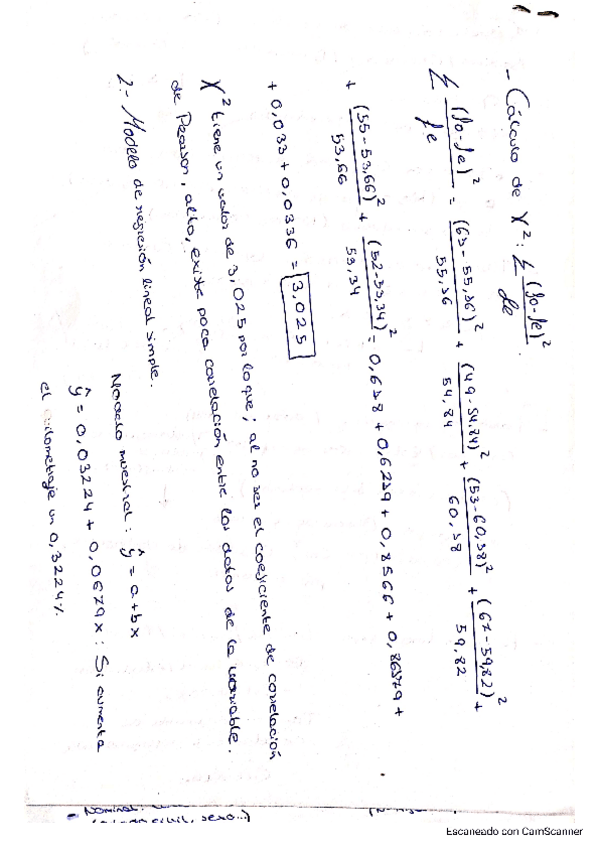 - Cálculo de X²: Σ (fo-fe)² / fe .
Σ (fo-fe)² / fe = (63-55,36)² / 55,36 + (49-54,84)² / 54,84 + (53-60,38)² / 60,38 + (67-59,82)² / 59,82 +
+ (55-53,66)² / 53,66 + (52-53,34)² / 53,34 = 0,638 + 0,6239 + 0,8566 + 0,86379 +
+ 0,033 + 0,0336 = 3,025
X² tiene un valor de 3,025 por lo que; al no ser el coeficiente de correlación
de Pearson, alto, existe poca correlación entre los datos de la variable.
2.- Modelo de regresión lineal simple.
Modelo muestral: ŷ = a + bx
ŷ = 0,03224 + 0,0679x: Si aumenta
el kilometraje un 0,3224%.
- Nominal:
sexo...)
Escaneado con CamScanner